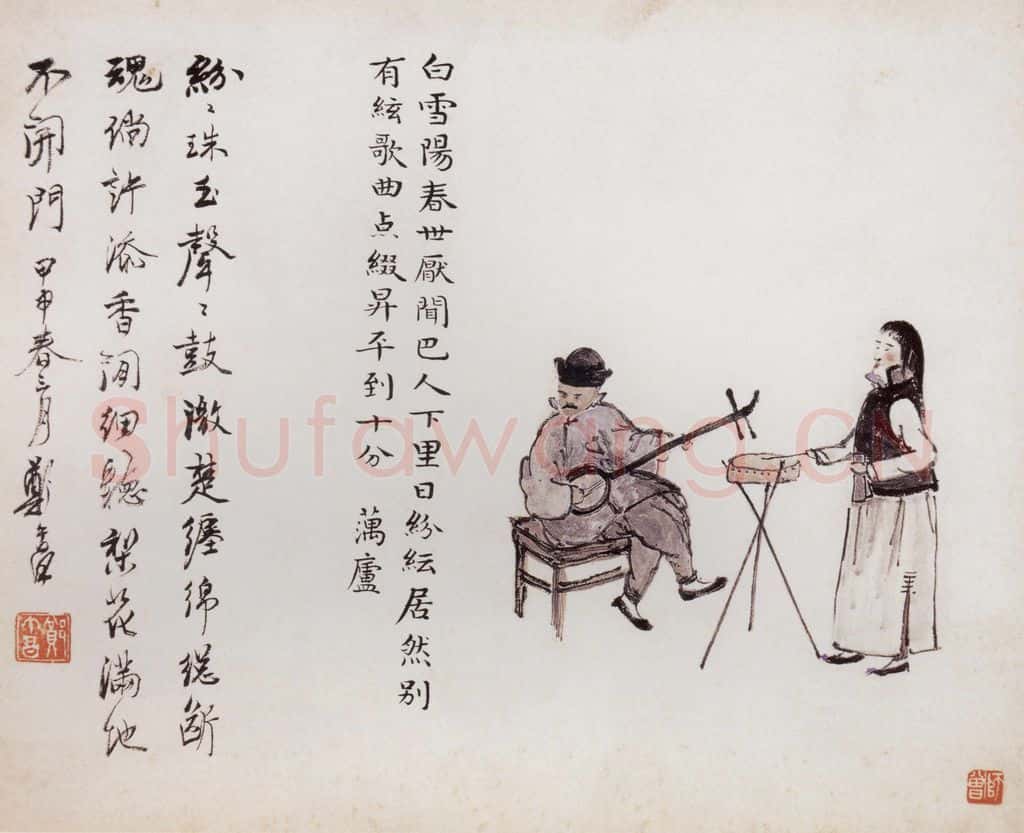 白雪陽春世厭聞巴人下里日紛紜居然別
有絃歌曲点綴昇平到十分 蕅廬
紛〻珠玉聲〻鼓激楚纏綿總斷
魂倘許添香閒細聽梨花滿地
不開門 甲申春三月鄭
師曾
Shufawang.CN